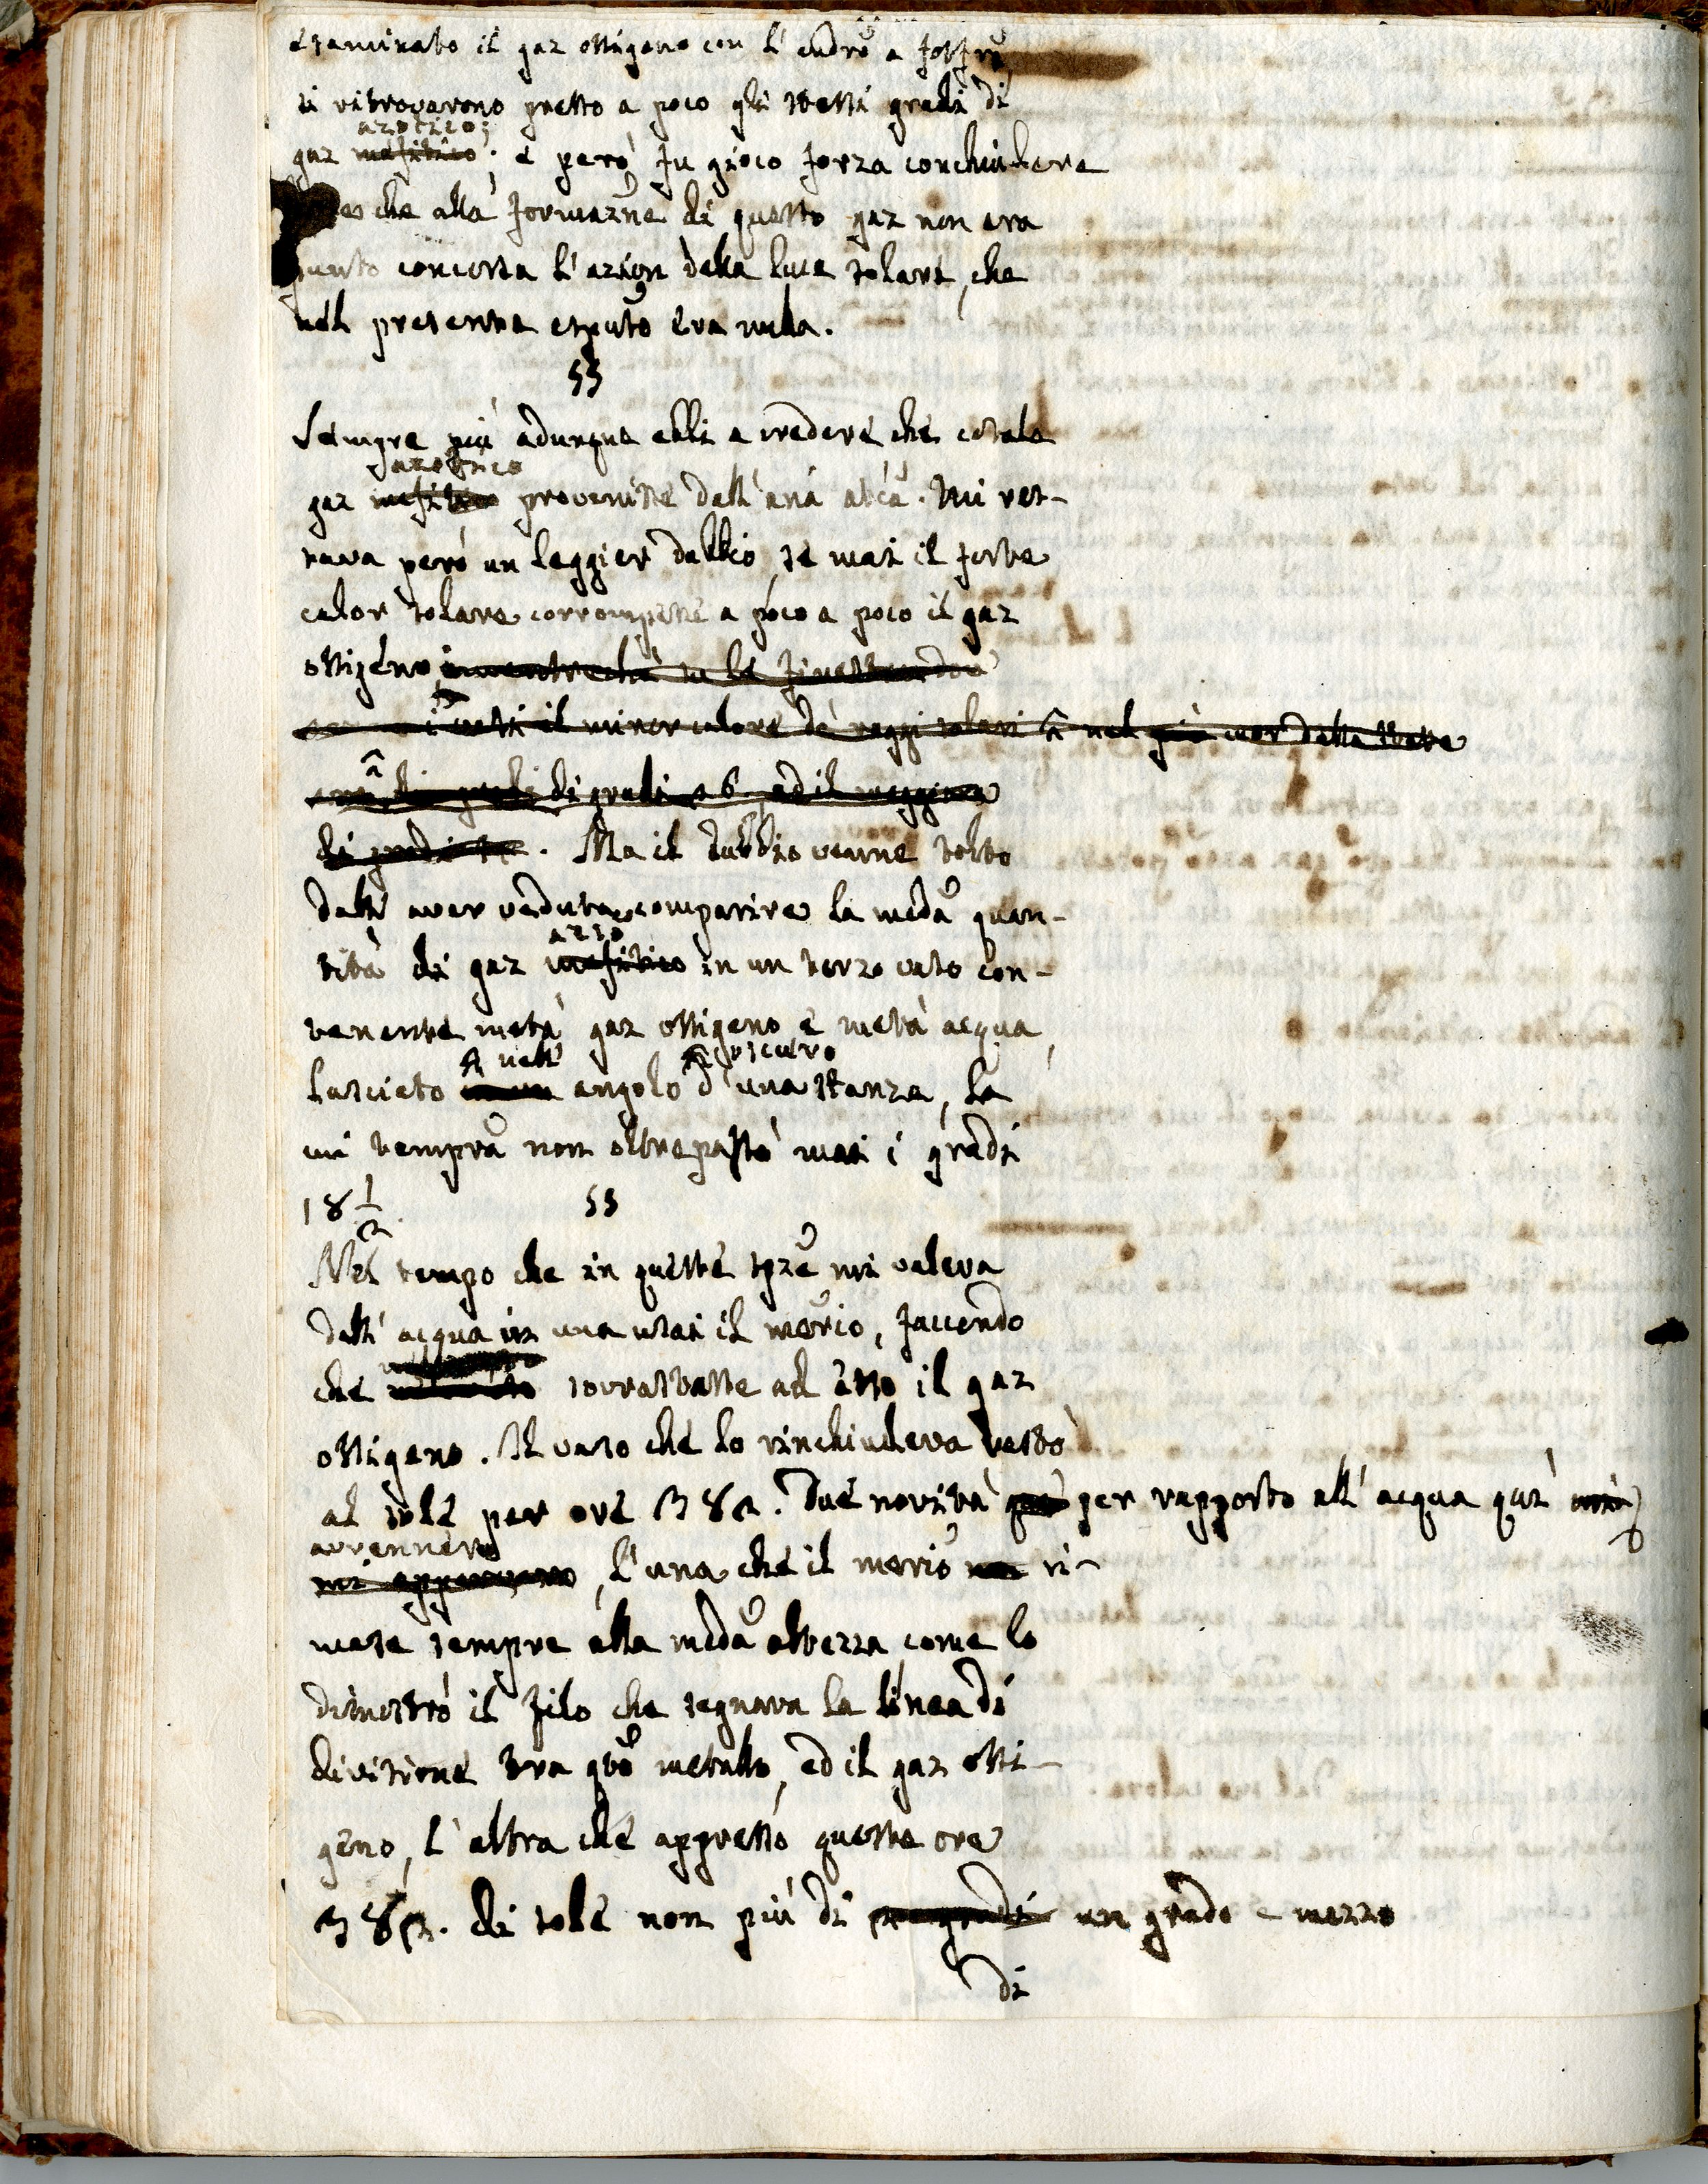 esaminato il gaz ossigeno con l'eudrō a fosfrū
si ritrovarono presso a poco gli stessi gradi di
azotico;
gaz mefitico; e però fu gioco forza conchiudere
che alla formazne di questo gaz non era
punto concorsa l'azion della luce solare, che
nel presente espūto era nulla.
§§
Sempre più adunque ebbi a credere che cotale
azotico
gaz mefitico provenisse dall'aria atcā. Mi res-
tava però un leggier dubbio, se mai il forte
calor solare corrompesse a poco a poco il gaz
ossigeno, mentreché su le finestre
il minor calore de' raggi solari nel più cuor della state
di gradi 26, ed il maggiore
di gradi. Ma il dubbio venne tolto
dall'aver veduta comparire la medā quan-
azto
tità di gaz mefitico in un terzo vaso con-
tenente metà gaz ossigeno e metà acqua,
nell' oscuro
lasciato in un angolo d'una stanza, la
cui temprā non oltrepassò mai i gradi
18 1/2. §§
Nel tempo che in queste spzē mi valeva
dell'acqua in una usai il merīo, faccendo
che sovrastasse ad esso il gaz
ossigeno. Il vaso che lo rinchiudeva restò
al sole per ore 382. Due novità per rapporto all'acqua quì mi
avvennero
mi apparvero, l'una che il merīo ri-
mase sempre alla medā altezza come lo
dimostrò il filo che segnava la linea di
divisione tra qtō metallo, ed il gaz ossi-
geno, l'altra che appresso queste ore
382. di sole non più di tre gradi un grado e mezzo
di